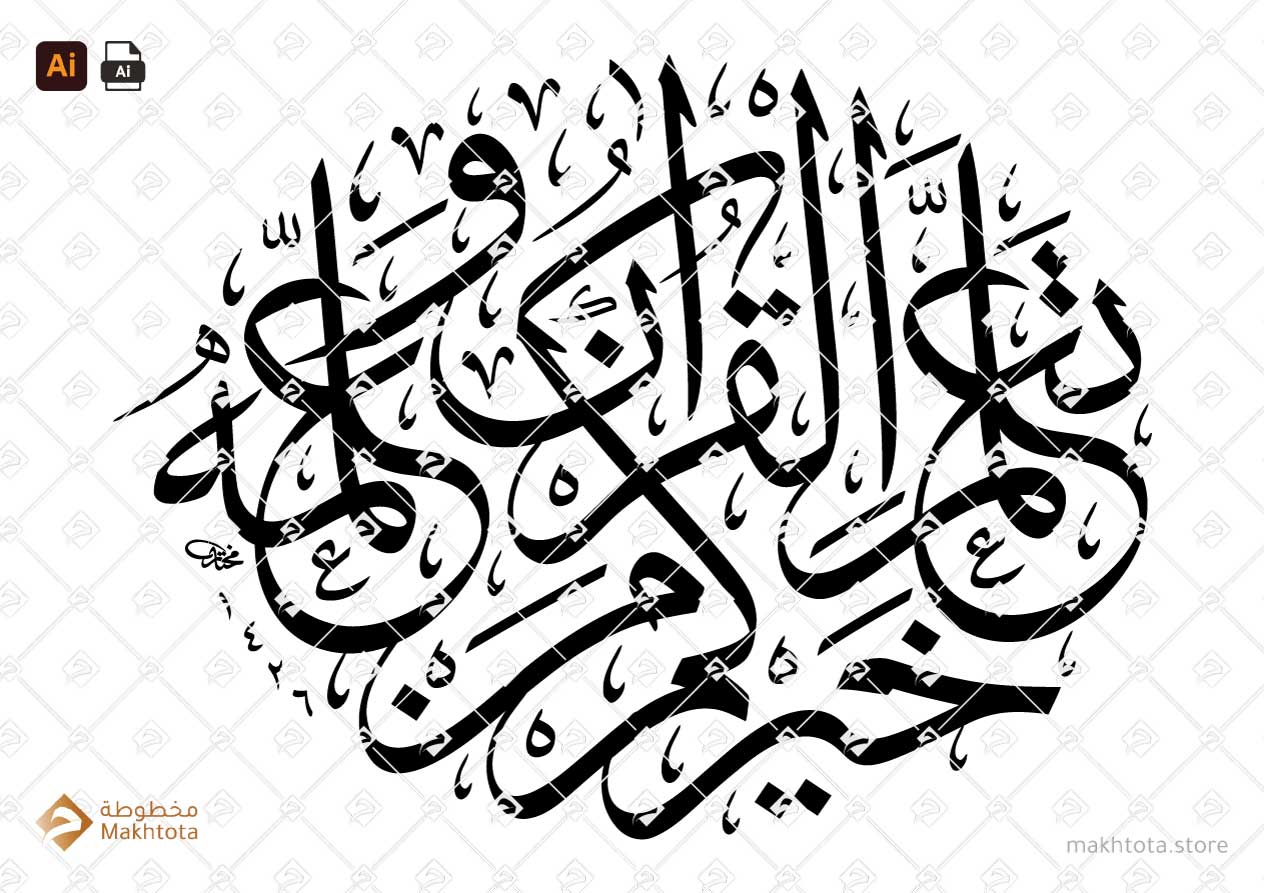 Ai
Ai
خيركم من
تعلم القرآن وعلمه
١٤٢٦
مخطوطة
Makhtota
makhtota.store